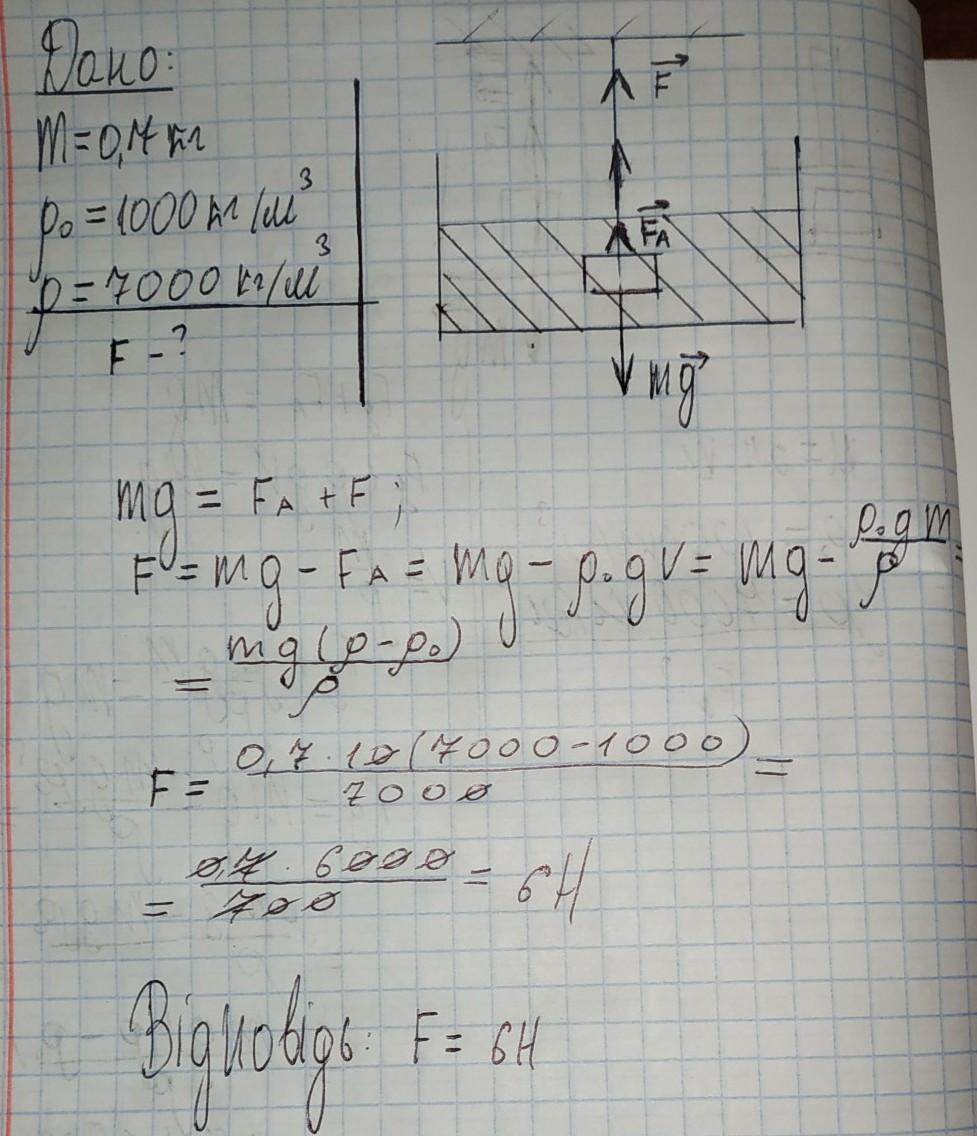 Дано:
m=0,7кг
ρ₀=1000кг/м³
ρ=7000кг/м³
F-?
F
FA
mg
mg = FA + F ;
F = mg - FA = mg - ρ₀gV = mg - ρ₀gm/ρ =
= mg(ρ-ρ₀)/ρ
F = 0,7·10(7000-1000)/7000 =
= 0,7·6000/700 = 6H
Відповідь: F= 6H